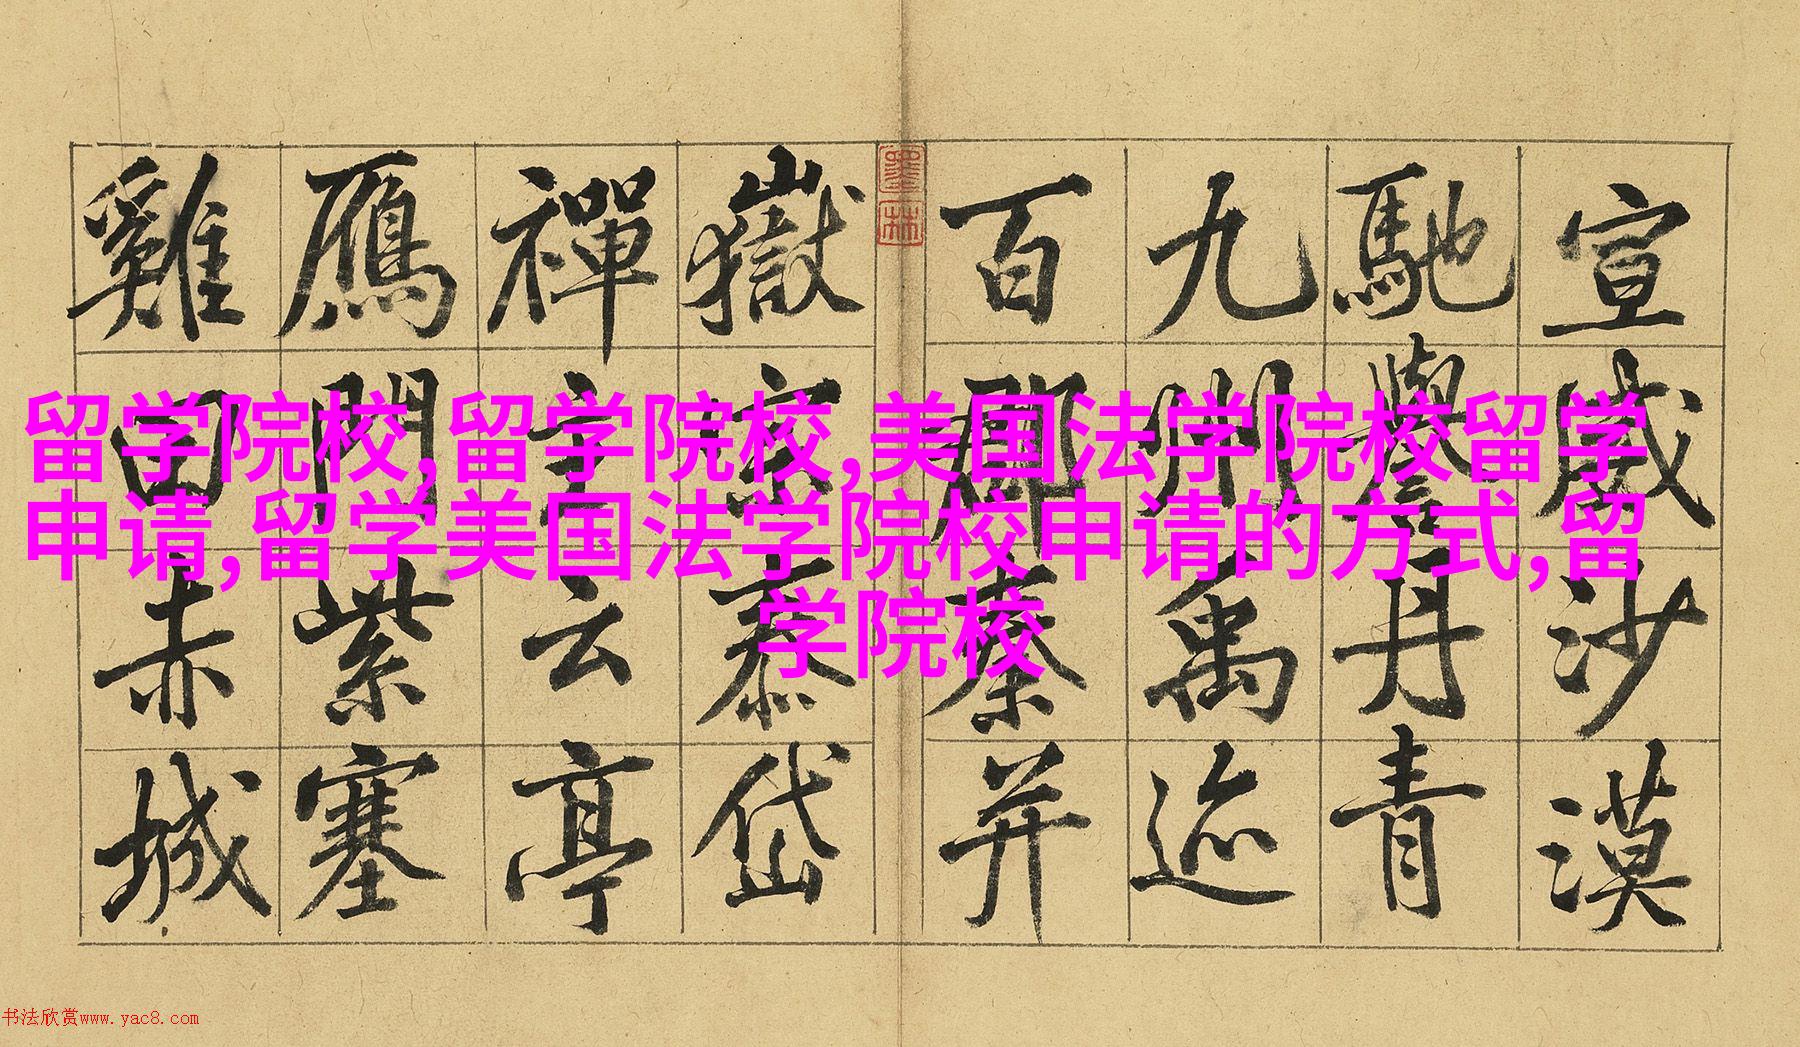 宣威沙漠
馳譽丹青
九州禹迹
百郡秦并
嶽宗泰岱
禪主云亭
鴈門紫塞
雞田赤城
墨林
留学院校,留学院校,美国法学院校留学
申请,留学美国法学院校申请的方式,留
学院校
书法欣赏www.yac8.com